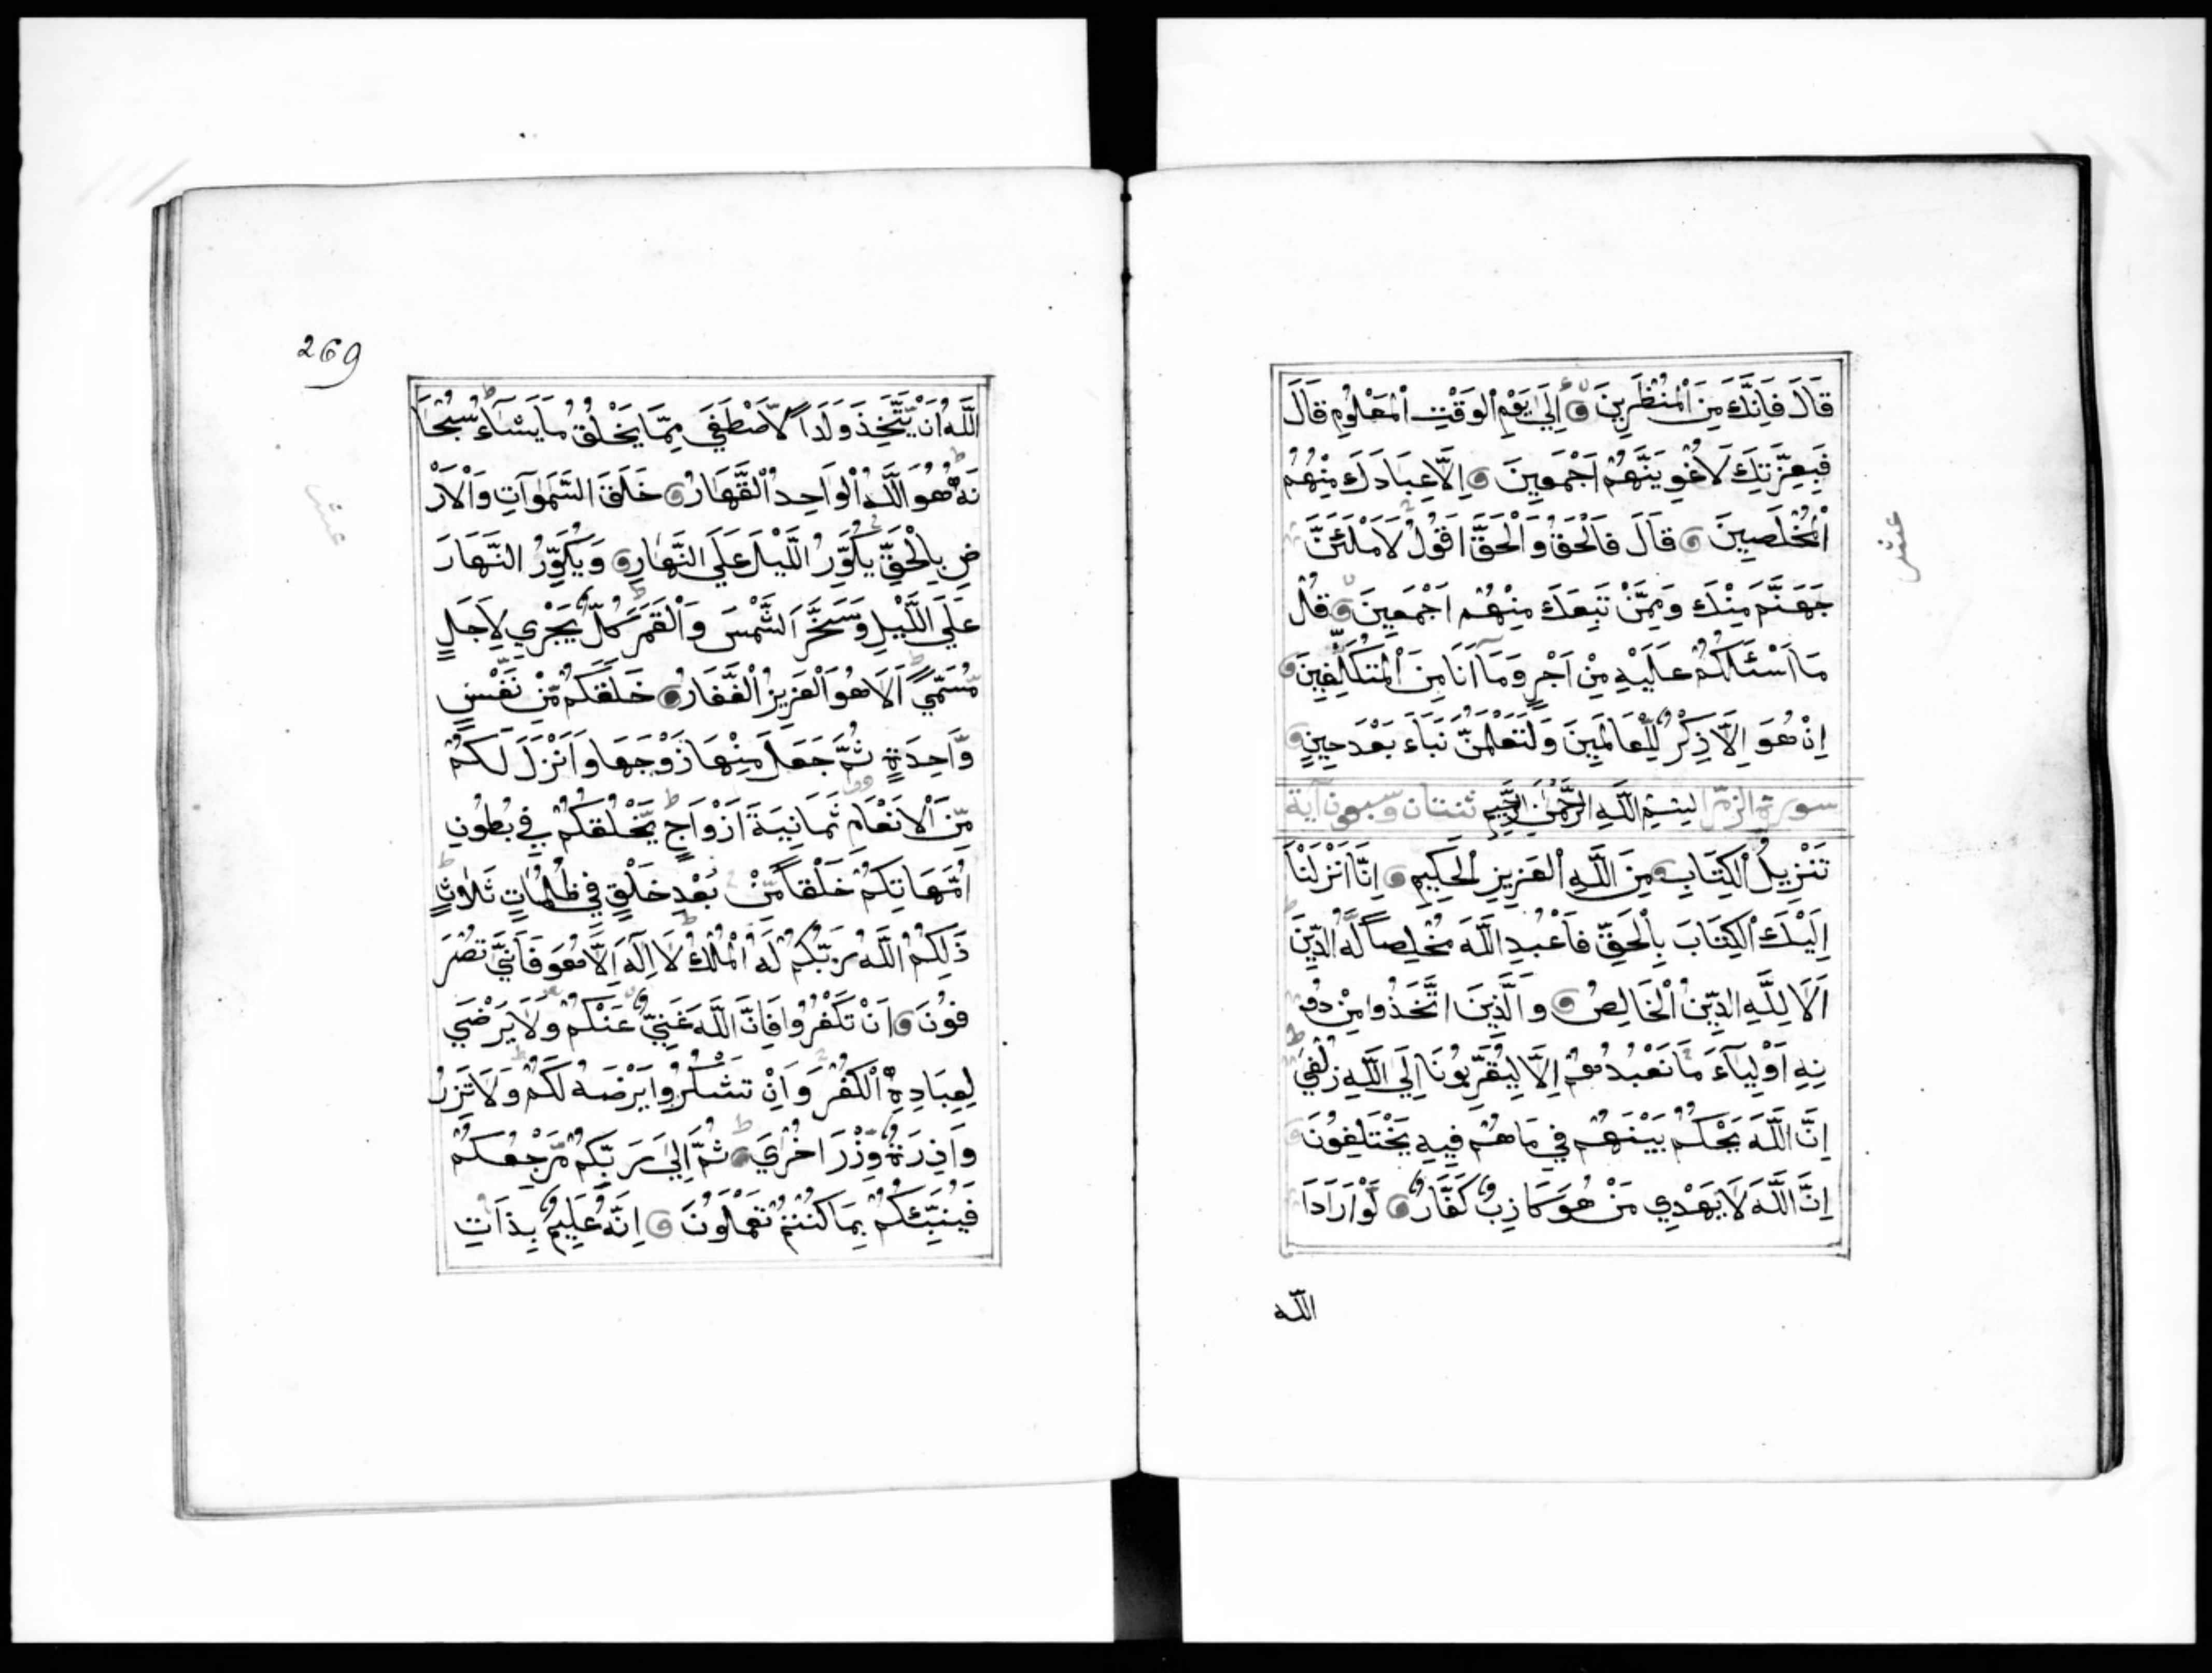 قَالَ فَاِنَّكَ مِنَ الْمُنْظَرِينَ اِلَىٰ يَوْمِ الْوَقْتِ الْمَعْلُومِ قَالَ
فَبِعِزَّتِكَ لَاُغْوِيَنَّهُمْ اَجْمَعِينَ اِلَّا عِبَادَكَ مِنْهُمُ
الْمُخْلَصِينَ قَالَ فَالْحَقُّ وَالْحَقَّ اَقُولُ لَاَمْلَئَنَّ
جَهَنَّمَ مِنْكَ وَمِمَّنْ تَبِعَكَ مِنْهُمْ اَجْمَعِينَ قُلْ
مَا اَسْئَلُكُمْ عَلَيْهِ مِنْ اَجْرٍ وَمَا اَنَا مِنَ الْمُتَكَلِّفِينَ
اِنْ هُوَ اِلَّا ذِكْرٌ لِلْعَالَمِينَ وَلَتَعْلَمُنَّ نَبَاَءَ بَعْدَ حِينٍ
سورة الزمر بِسْمِ اللَّهِ الرَّحْمٰنِ الرَّحِيمِ ثنتان وسبعون آية
تَنْزِيلُ الْكِتَابِ مِنَ اللَّهِ الْعَزِيزِ الْحَكِيمِ اِنَّا اَنْزَلْنَا
اِلَيْكَ الْكِتَابَ بِالْحَقِّ فَاعْبُدِ اللَّهَ مُخْلِصاً لَّهُ الدِّينَ
اَلَا لِلَّهِ الدِّينُ الْخَالِصُ وَالَّذِينَ اتَّخَذُوا مِنْ دُو
نِهِ اَوْلِيَآءَ مَا نَعْبُدُهُمْ اِلَّا لِيُقَرِّبُونَا اِلَى اللَّهِ زُلْفَىٰ
اِنَّ اللَّهَ يَحْكُمُ بَيْنَهُمْ فِي مَا هُمْ فِيهِ يَخْتَلِفُونَ
اِنَّ اللَّهَ لَا يَهْدِي مَنْ هُوَ كَاذِبٌ كَفَّارٌ لَوْ اَرَادَ
الله
عشر
269
اللَّهُ اَنْ يَّتَّخِذَ وَلَداً لَّاصْطَفَىٰ مِمَّا يَخْلُقُ مَا يَشَآءُ سُبْحَا
نَهُ هُوَ اللَّهُ الْوَاحِدُ الْقَهَّارُ خَلَقَ السَّمٰوَاتِ وَالْاَرْ
ضِ بِالْحَقِّ يُكَوِّرُ اللَّيْلَ عَلَى النَّهَارِ وَيُكَوِّرُ النَّهَارَ
عَلَى اللَّيْلِ وَسَخَّرَ الشَّمْسَ وَالْقَمَرَ كُلٌّ يَجْرِي لِاَجَلٍ
مُّسَمًّى اَلَا هُوَ الْعَزِيزُ الْغَفَّارُ خَلَقَكُمْ مِّنْ نَفْسٍ
وَّاحِدَةٍ ثُمَّ جَعَلَ مِنْهَا زَوْجَهَا وَاَنْزَلَ لَكُمْ
مِّنَ الْاَنْعَامِ ثَمَانِيَةَ اَزْوَاجٍ يَّخْلُقُكُمْ فِي بُطُونِ
اُمَّهَاتِكُمْ خَلْقاً مِّنْ بَعْدِ خَلْقٍ فِي ظُلُمَاتٍ ثَلَاثٍ
ذَلِكُمُ اللَّهُ رَبُّكُمْ لَهُ الْمُلْكُ لَا اِلَهَ اِلَّا هُوَ فَاَنَّىٰ تُصْرَ
فُونَ اِنْ تَكْفُرُوا فَاِنَّ اللَّهَ غَنِيٌّ عَنْكُمْ وَلَا يَرْضَىٰ
لِعِبَادِهِ الْكُفْرَ وَاِنْ تَشْكُرُوا يَرْضَهُ لَكُمْ وَلَا تَزِرُ
وَازِرَةٌ وِّزْرَ اُخْرَىٰ ثُمَّ اِلَىٰ رَبِّكُمْ مَّرْجِعُكُمْ
فَيُنَبِّئُكُمْ بِمَا كُنْتُمْ تَعْمَلُونَ اِنَّهُ عَلِيمٌ بِذَاتِ
عشر